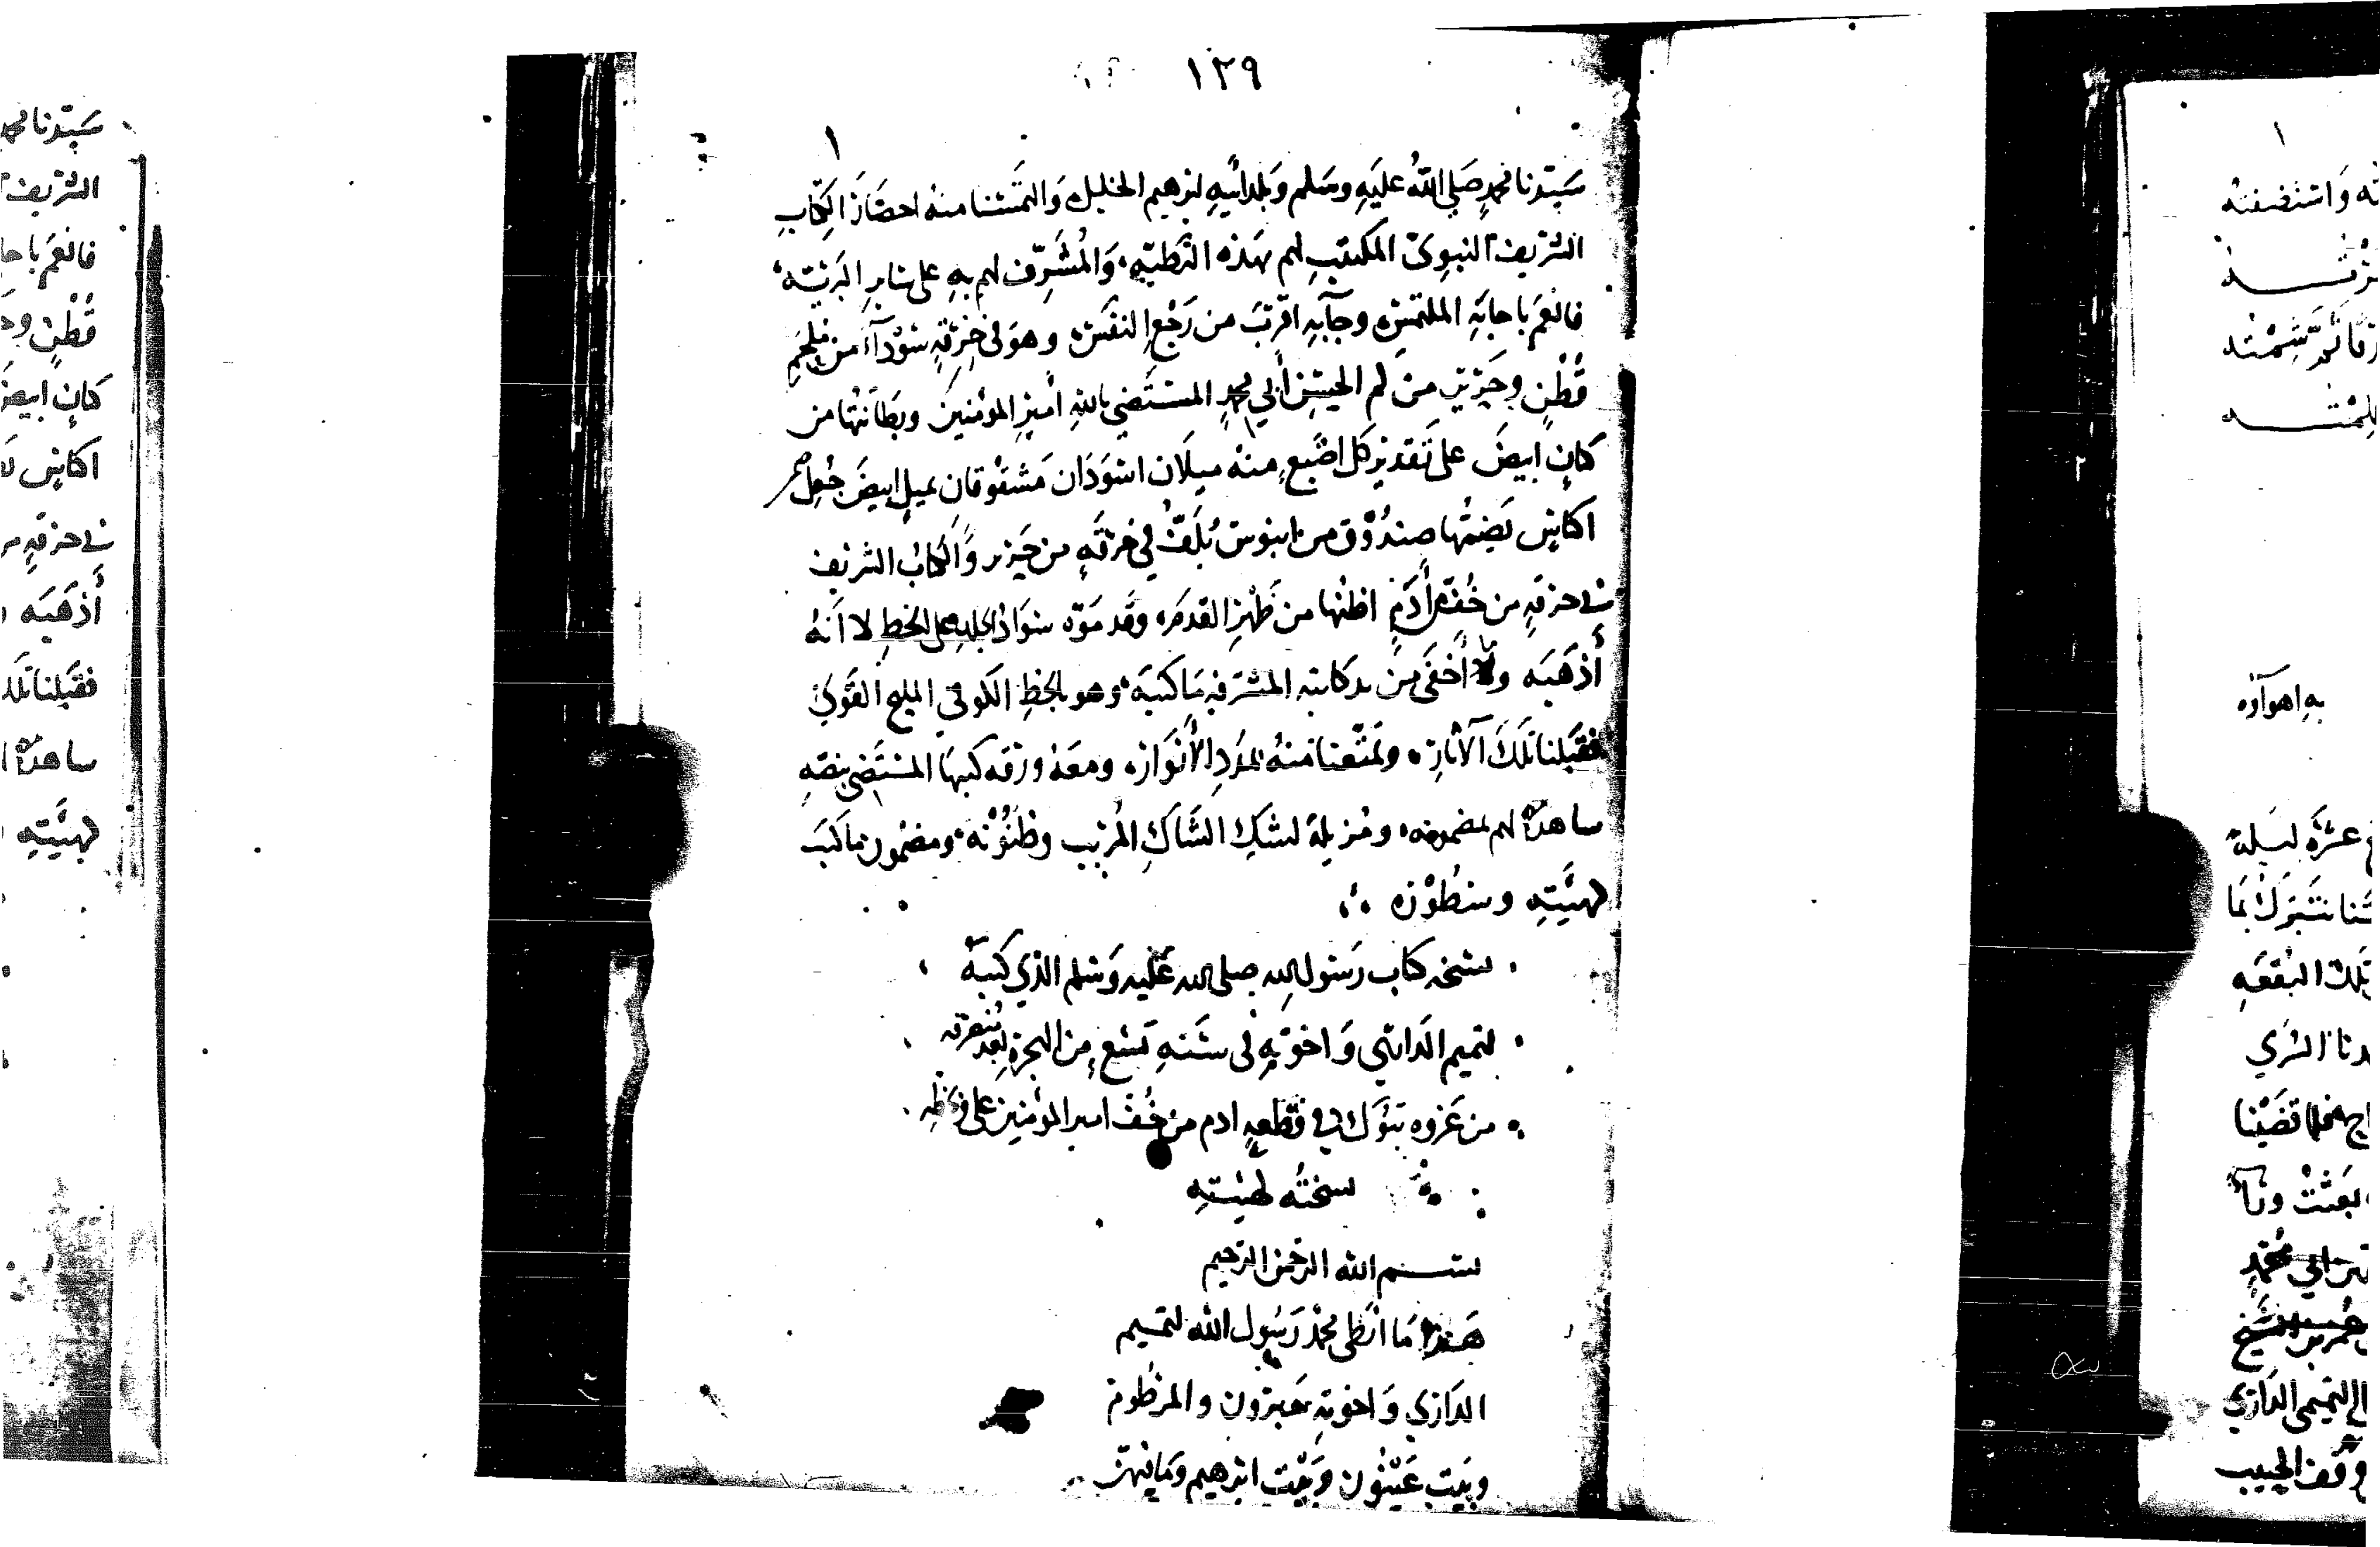 ١٢٩
سيدنا محمد صلى الله عليه وسلم وبلد أبيه ابرهيم الخليل والتمسنا منه احضار الكتاب
الشريف النبوي المكتتب لهم بهذه العطيه والمشرف لهم به على سائر البريه
فانعم باجابة الملتمس وجآ به اقرب من رجع النفس وهو في خرقه سودآء من ملحم
قطن وحرير من كم الحسن أبي محمد المستضي بالله أمير المؤمنين وبطانتها من
كتان ابيض على تقدير كل اصبع منه ميلان اسودان مشقوقان بميل ابيض جعل
اكايس يضمها صندوق من ابنوس يلف في خرقه من حرير والكتاب الشريف
في خرقه من خف أدم اظنها من ظهر القدم وقد موه سواد الجلد على الخط لا أنه
أذهبه ولا أخفى من يد كاتبه المشرفه ما كتبه وهو بالخط الكوفي المليح القوي
فقبلنا تلك الآثار وتمتعنا منه بمدد الأنوار ومعه ورقه كتبها المستضي بنصه
شاهدة لهم بمضمونه ومزيلة لشك الشاك المريب وظنونه ومضمون ما كتب
كهيئته وسطوره
نسخه كتاب رسول الله صلى الله عليه وسلم الذي كتبه
لتميم الداري واخوته في سنه تسع من الهجرة بعد منصرفه
من غزوه تبوك في قطعه ادم من خف امير المؤمنين علي وبخطه
نسخته كهيئته
بسم الله الرحمن الرحيم
هذا ما انطى محمد رسول الله لتميم
الداري واخوته حبرون والمرطوم
وبيت عينون وبيت ابرهيم وما فيهن